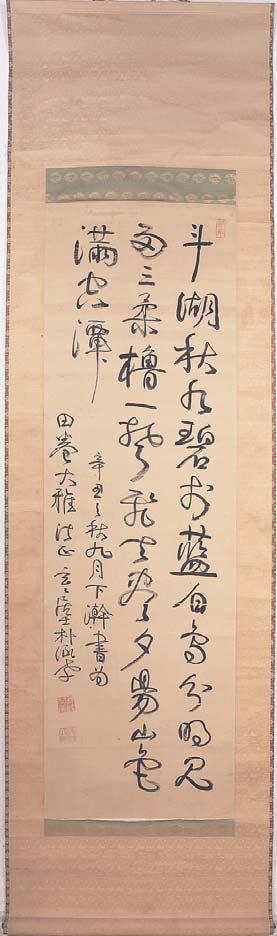 斗湖秋水碧於藍白鳥分明見
兩三柔櫓一聲飛去盡夕陽山色
滿空潭
辛丑之秋九月下澣書爲
田巻大雅法正玄玄朴泳孝